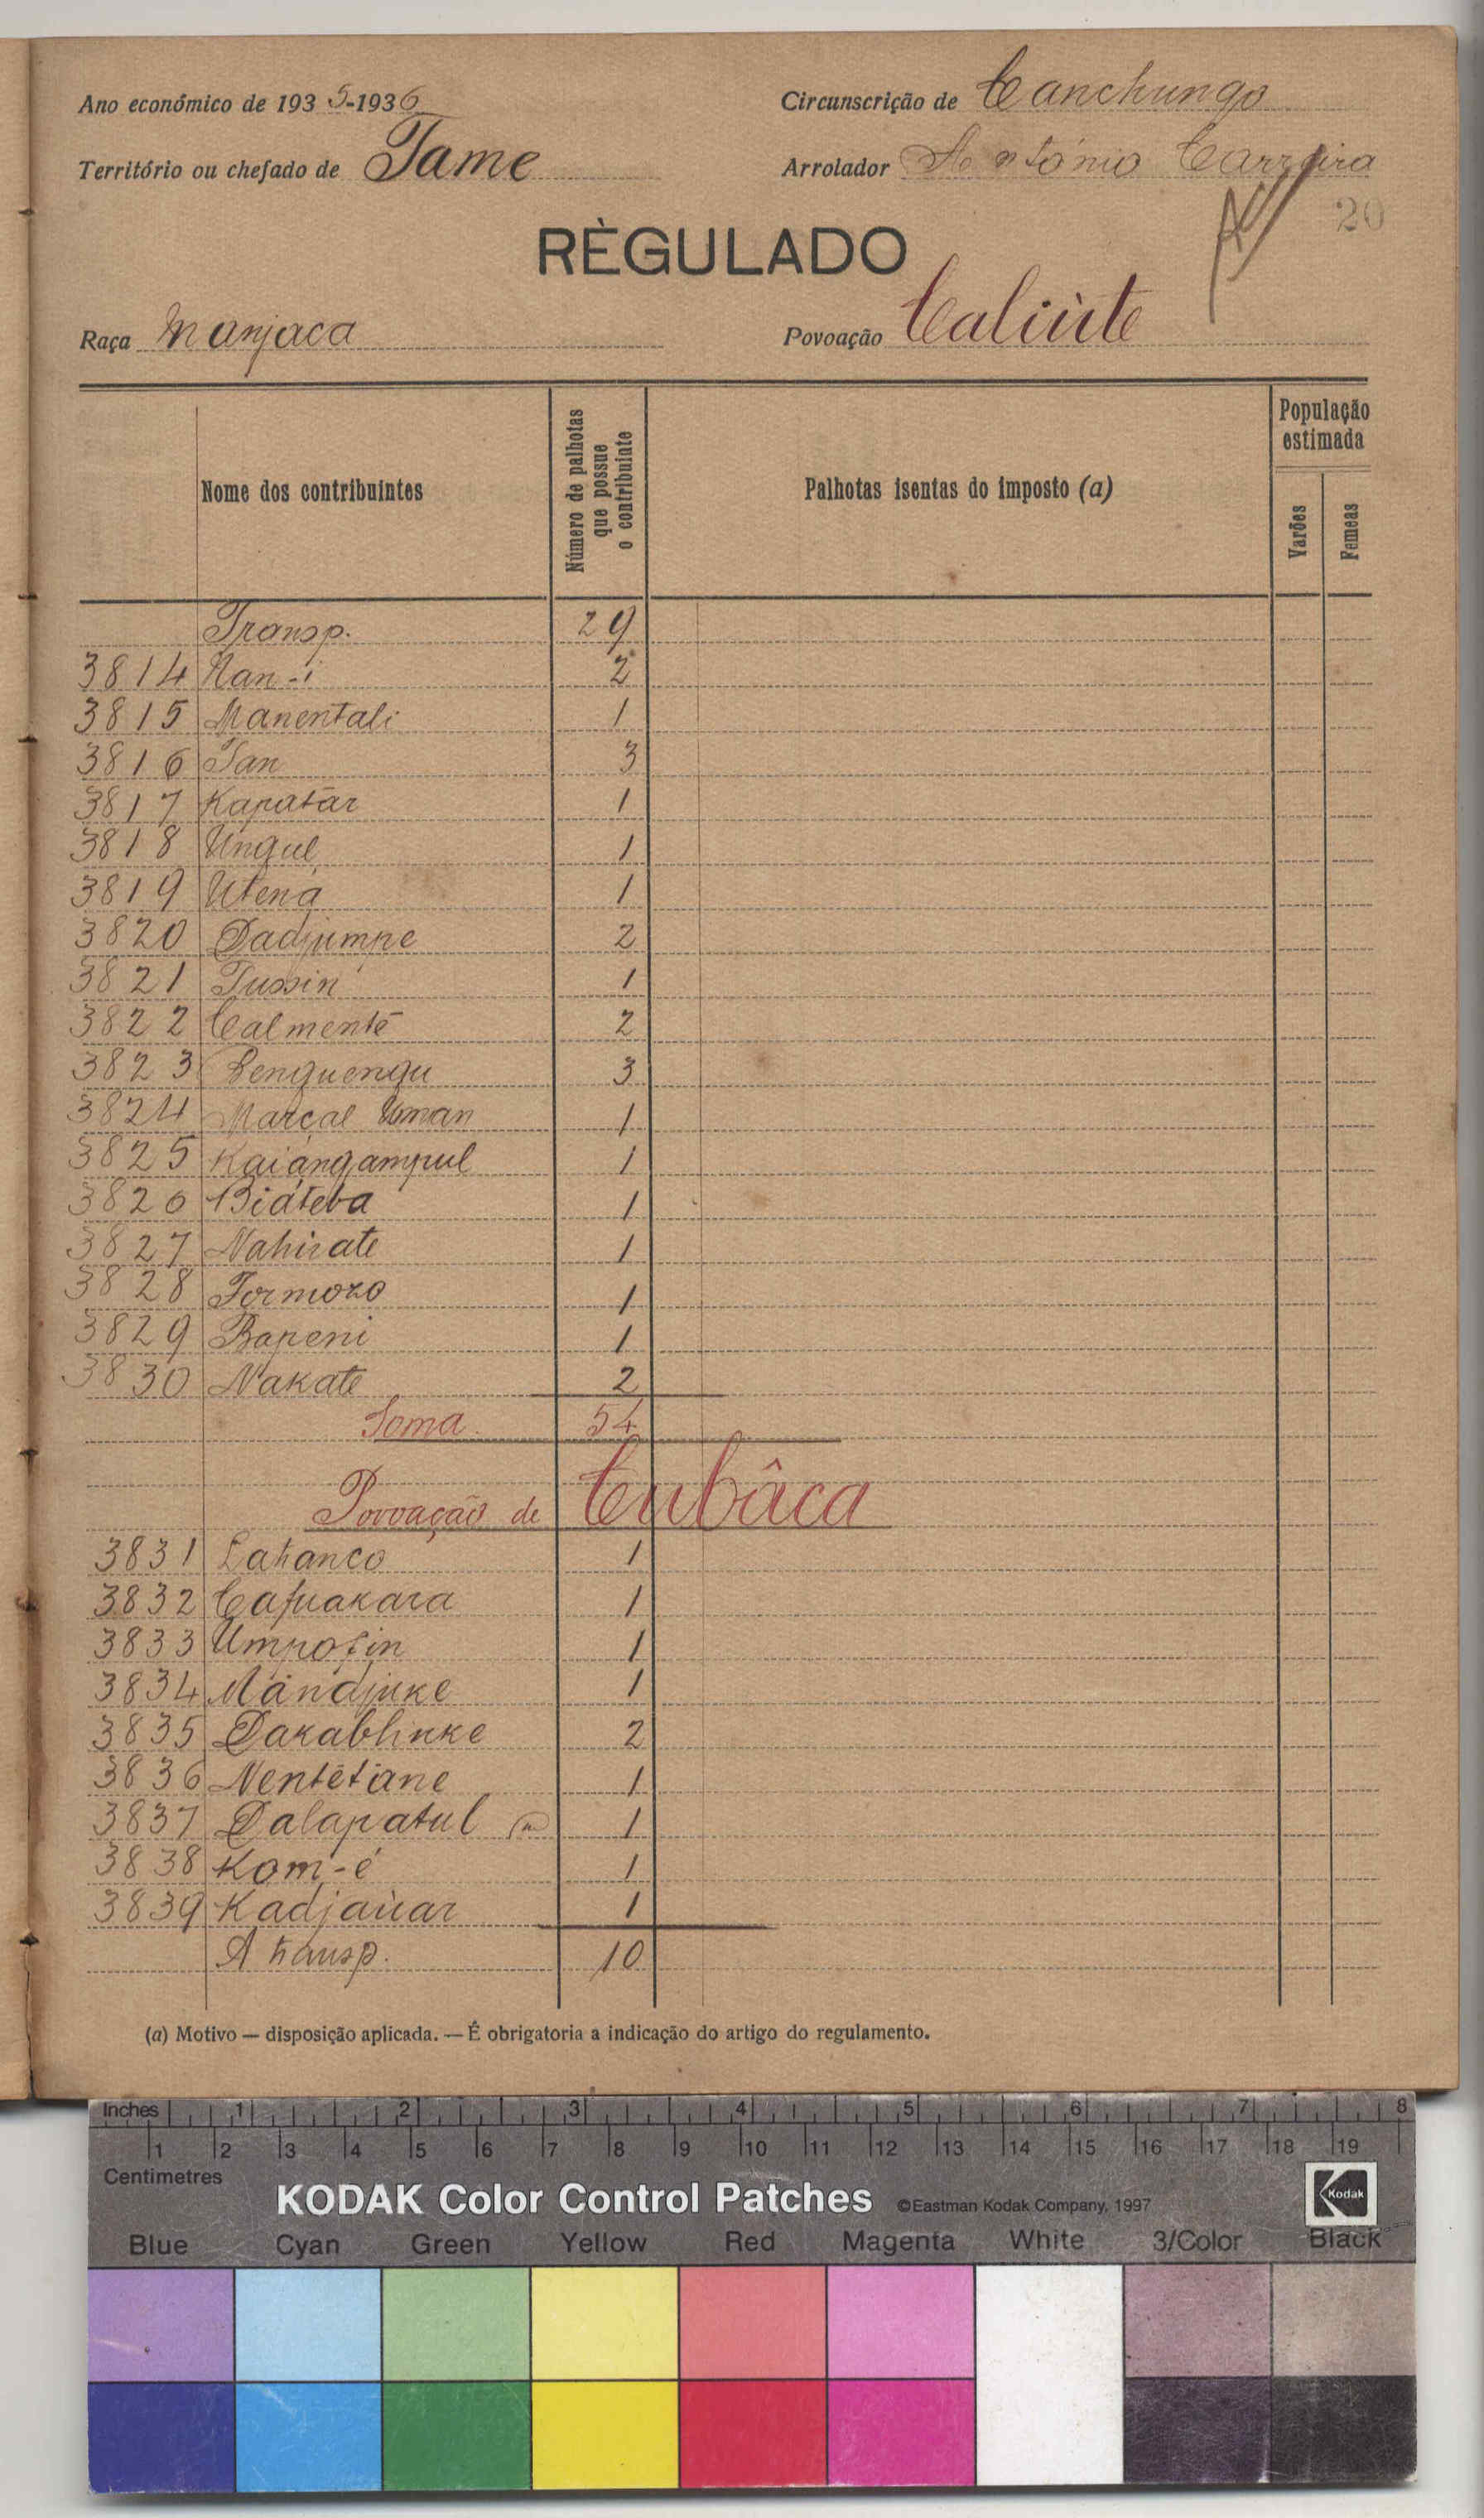 Ano económico de 1935-1936
Circunscrição de Canchungo
Território ou chefado de Tame
Arrolador António Carreira
20
RÈGULADO
Raça Manjaca
Povoação Caliùte
Nome dos contribuintes
Número de palhotas que possue o contribuinte
Palhotas isentas do imposto (a)
População estimada
Varões
Femeas
Transp. 29
3814 Nan-i 2
3815 Manentali 1
3816 Tan 3
3817 Kapatar 1
3818 Ungul 1
3819 Utena 1
3820 Dadjumpe 2
3821 Tussin 1
3822 Calmentè 2
3823 Benguengu 3
3824 Marçal Uman 1
3825 Kaiangampul 1
3826 Biateba 1
3827 Nahirate 1
3828 Formozo 1
3829 Bapeni 1
3830 Nakate 2
Soma 54
Povoação de Cubâca
3831 Lahanco 1
3832 Cafuakara 1
3833 Umpofin 1
3834 Mandjuke 1
3835 Dakablinke 2
3836 Nentêtane 1
3837 Dalapatul 1
3838 Kom-é 1
3839 Kadjaùar 1
A transp. 10
(a) Motivo — disposição aplicada. — É obrigatoria a indicação do artigo do regulamento.
Inches 1 2 3 4 5 6 7 8
1 2 3 4 5 6 7 8 9 10 11 12 13 14 15 16 17 18 19
Centimetres
KODAK Color Control Patches ©Eastman Kodak Company, 1997 Kodak
Blue Cyan Green Yellow Red Magenta White 3/Color Black